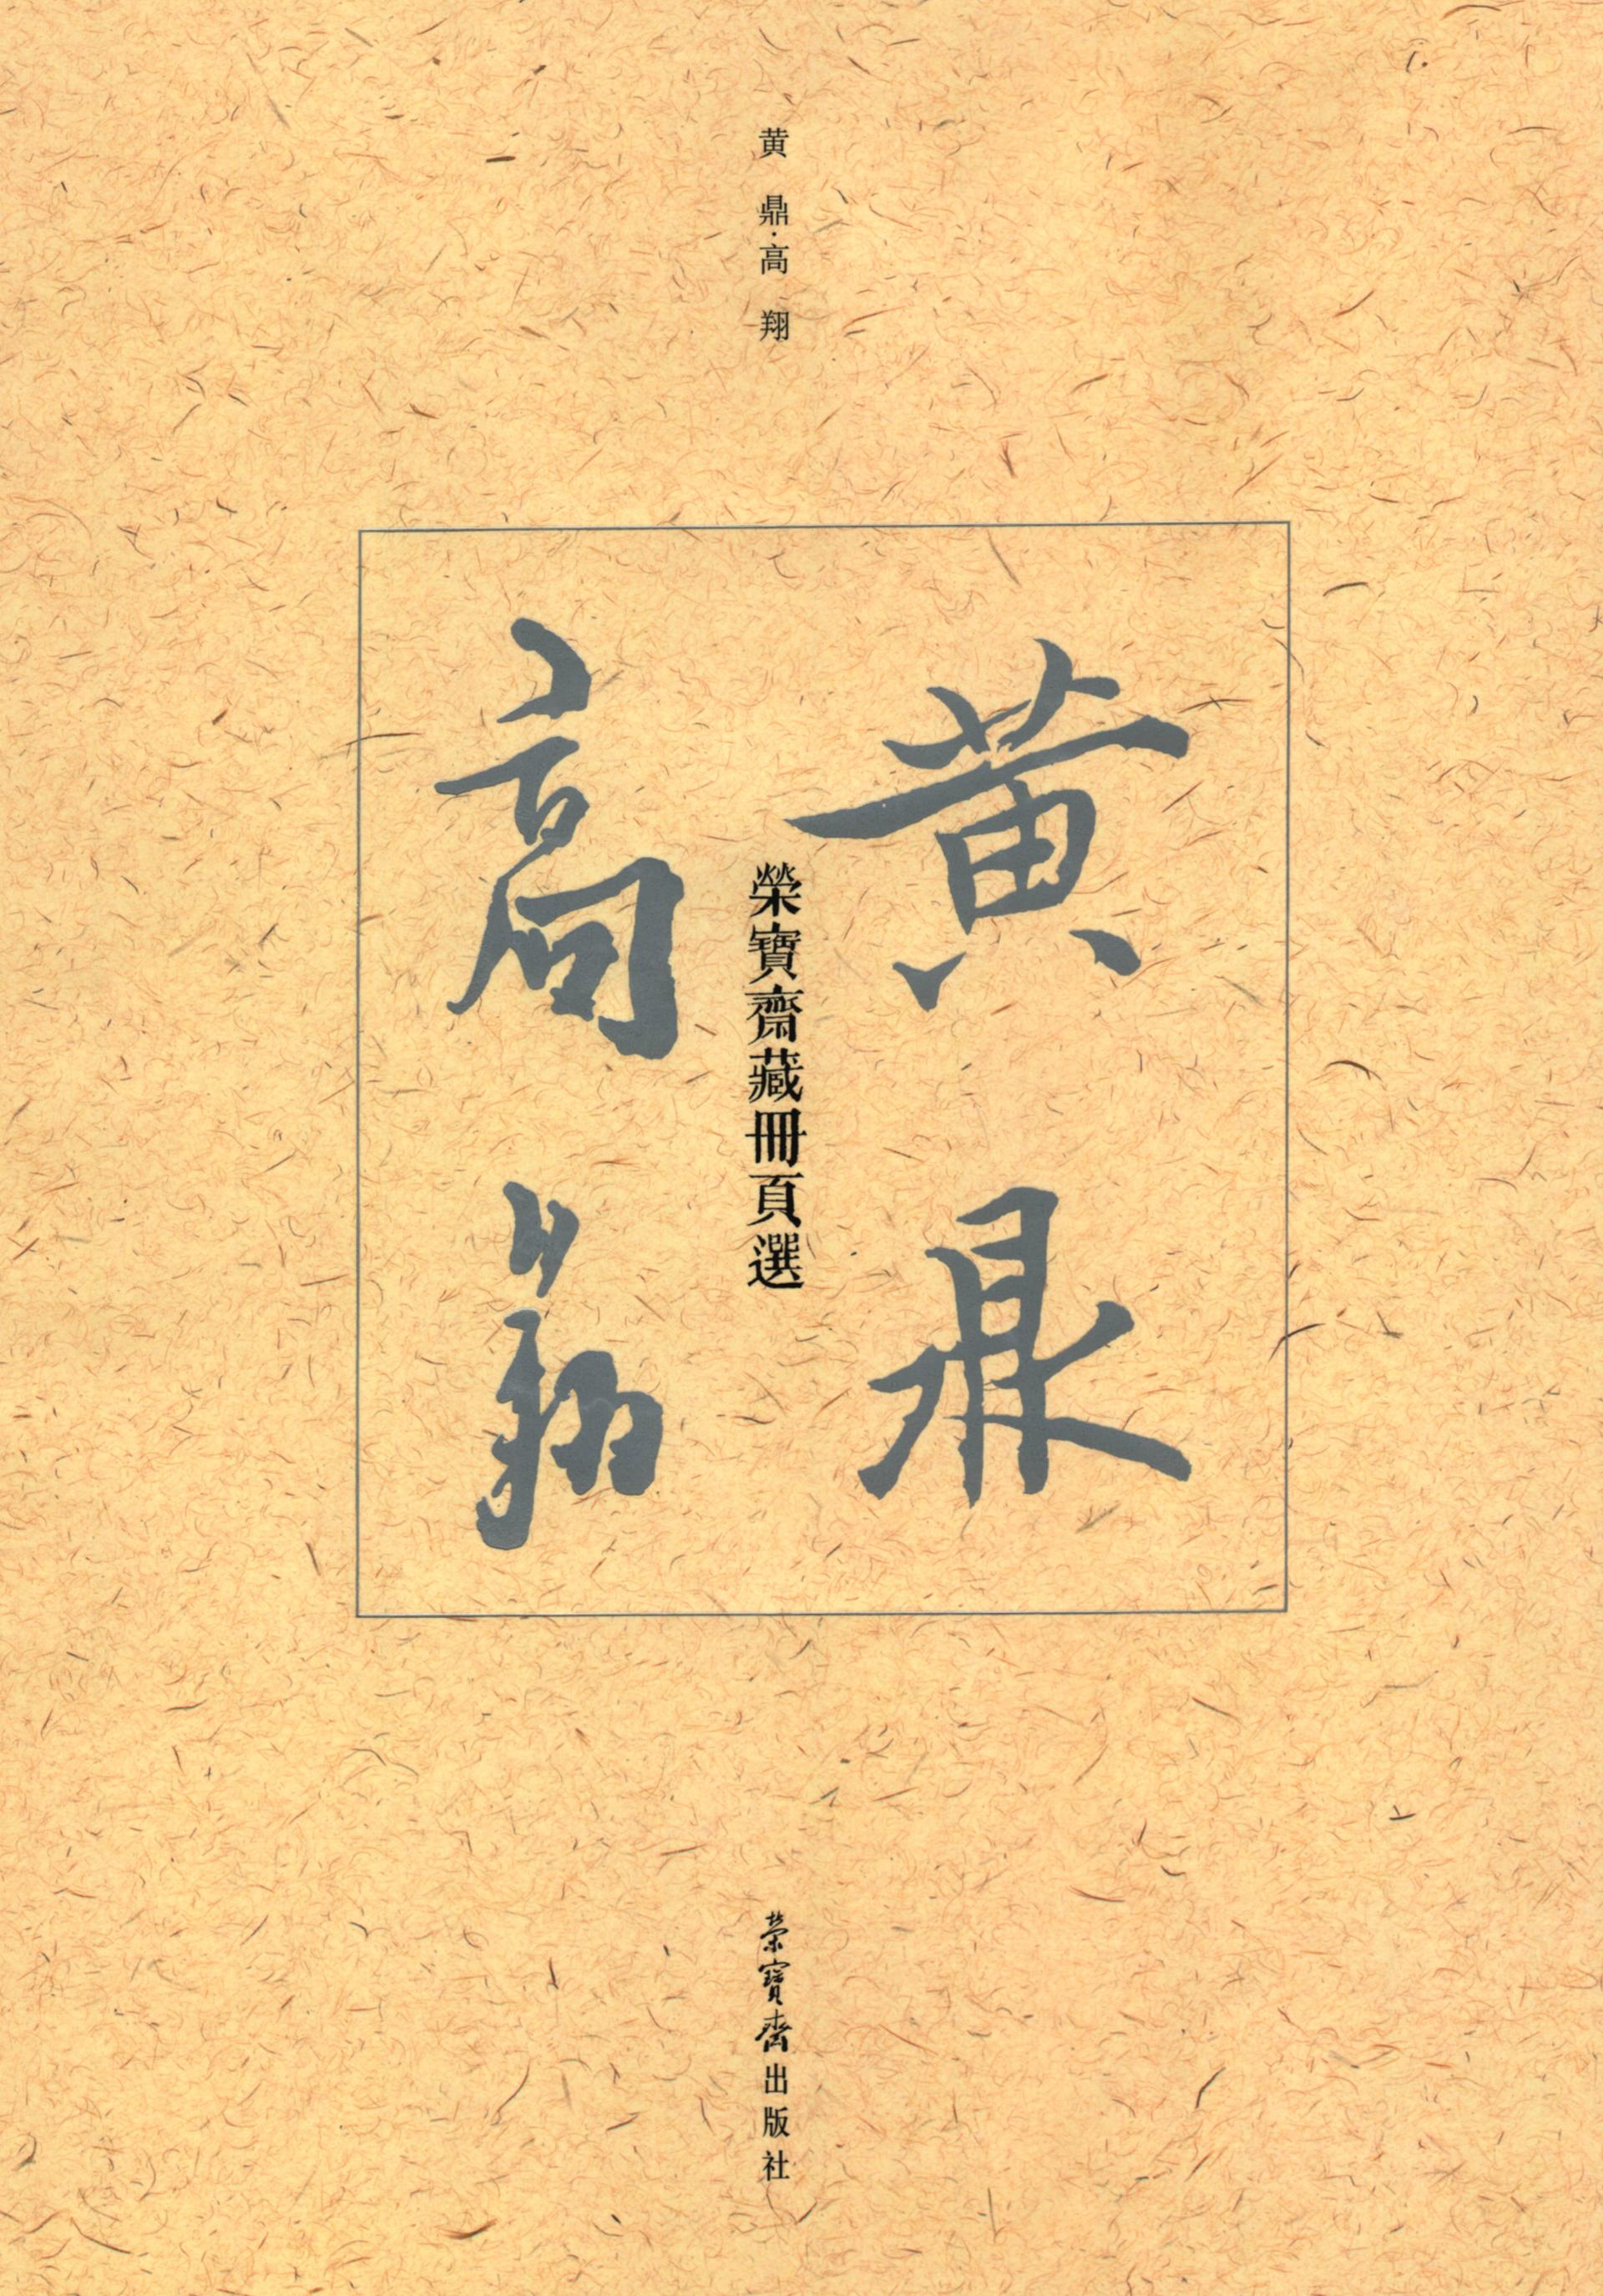 黄鼎·高翔
黄鼎
榮寶齋藏冊頁選
高翔
榮寶齋出版社